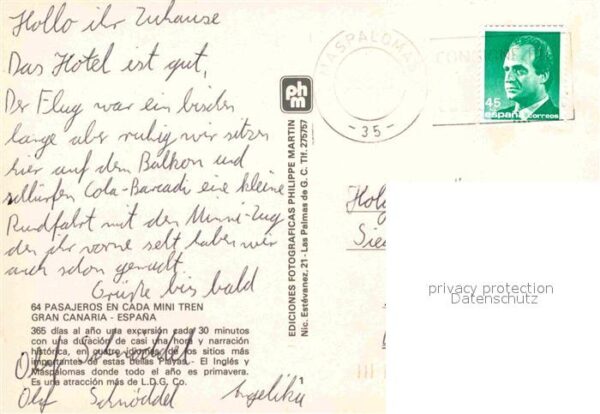 Hollo ihr Zuhause
Das Hotel ist gut,
Der Flug war ein bischen
lange aber ruhig wir sitzen
hier auf dem Balkon und
schlürfen Cola-Barcadi eine kleine
Rundfahrt mit dem Minni-Zug
den ihr vorne seht haben wir
auch schon gemacht
Grüße bis bald
64 PASAJEROS EN CADA MINI TREN
GRAN CANARIA - ESPAÑA
365 días al año una excursión cada 30 minutos
con una duración de casi una hora y narración
histórica, en cuatro idiomas de los sitios más
importantes de estas bellas Playas. El Inglés y
Maspalomas donde todo el año es primavera.
Es una atracción más de L.D.G. Co.
Olaf Schnöddel
Olaf Schnöddel Angelika
phm
EDICIONES FOTOGRAFICAS PHILIPPE MARTIN
Nic. Estévanez, 21 - Las Palmas de G. C. Tlf. 275757
MASPALOMAS
-35-
45
españa correos
privacy protection
Datenschutz